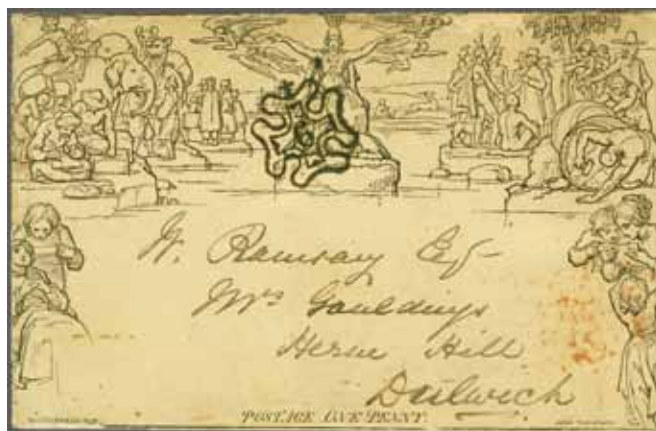 6
W. Ramsay Esq
Mrs Gouldings
Herne Hill
Dulwich
POSTAGE ONE PENNY.